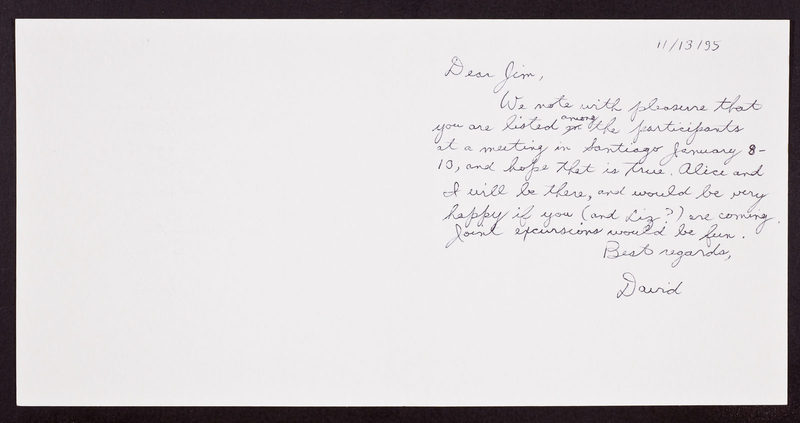 11/13/95
Dear Jim,
We note with pleasure that
you are listed among the participants
at a meeting in Santiago January 8-
13, and hope that is true. Alice and
I will be there, and would be very
happy if you (and Liz?) are coming.
Joint excursions would be fun.
Best regards,
David